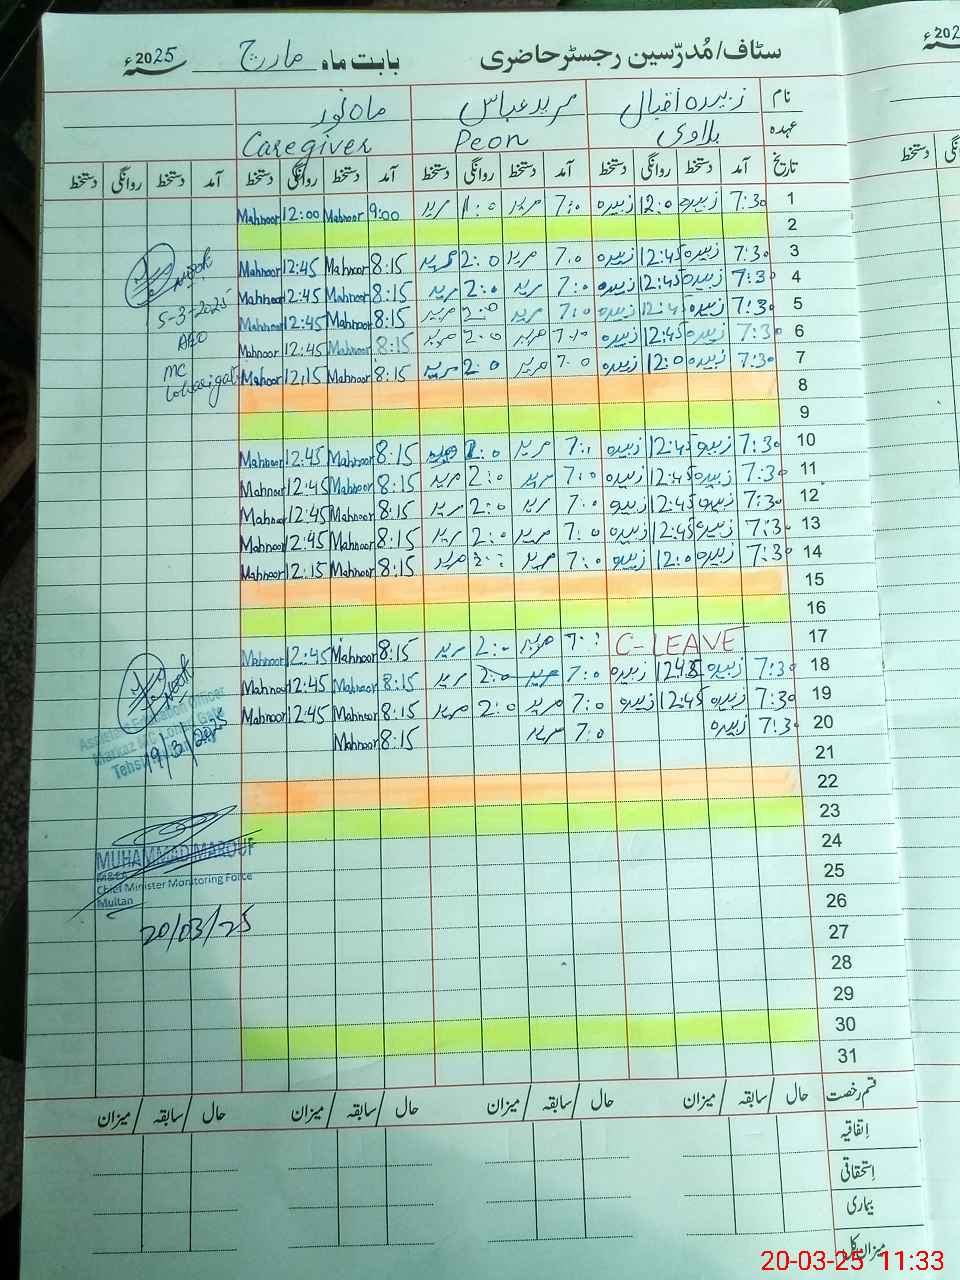 سٹاف/مُدرّسین رجسٹرحاضری بابت ماہ مارچ 2025ء
نام زبیدہ اقبال مرید عباس ماہ نور
عہدہ Peon Caregiver
تاریخ آمد دستخط روانگی دستخط آمد دستخط روانگی دستخط آمد دستخط روانگی دستخط آمد دستخط روانگی دستخط
1 7:30 زبیدہ 12:0 زبیدہ 7:0 مرید 1:0 مرید 9:00 Mahnoor 12:00 Mahnoor
2
3 7:30 زبیدہ 12:45 زبیدہ 7:0 مرید 2:0 مرید 8:15 Mahnoor 12:45 Mahnoor
4 7:30 زبیدہ 12:45 زبیدہ 7:0 مرید 2:0 مرید 8:15 Mahnoor 12:45 Mahnoor
5 7:30 زبیدہ 12:45 زبیدہ 7:0 مرید 2:0 مرید 8:15 Mahnoor 12:45 Mahnoor
6 7:30 زبیدہ 12:45 زبیدہ 7:0 مرید 2:0 مرید 8:15 Mahnoor 12:45 Mahnoor
7 7:30 زبیدہ 12:0 زبیدہ 7:0 مرید 2:0 مرید 8:15 Mahnoor 12:15 Mahnoor
8
9
10 7:30 زبیدہ 12:45 زبیدہ 7:0 مرید 2:0 8:15 Mahnoor 12:45 Mahnoor
11 7:30 زبیدہ 12:45 زبیدہ 7:0 مرید 2:0 مرید 8:15 Mahnoor 12:45 Mahnoor
12 7:30 زبیدہ 12:45 زبیدہ 7:0 مرید 2:0 مرید 8:15 Mahnoor 12:45 Mahnoor
13 7:30 زبیدہ 12:45 زبیدہ 7:0 مرید 2:0 مرید 8:15 Mahnoor 12:45 Mahnoor
14 7:30 زبیدہ 12:0 زبیدہ 7:0 مرید 2:0 مرید 8:15 Mahnoor 12:15 Mahnoor
15
16
17 C-LEAVE 7:0 مرید 2:0 مرید 8:15 Mahnoor 12:45 Mahnoor
18 7:30 زبیدہ 12:45 زبیدہ 7:0 مرید 2:0 مرید 8:15 Mahnoor 12:45 Mahnoor
19 7:30 زبیدہ 12:45 زبیدہ 7:0 مرید 2:0 مرید 8:15 Mahnoor 12:45 Mahnoor
20 7:30 زبیدہ 7:0 مرید 8:15 Mahnoor
21
22
23
24
25
26
27
28
29
30
31
5-3-2025
AEO
MC
Assistant Education Officer
Markaz
Tehsil
19/3/2025
MUHAMMAD MAROUF
M&EA
Chief Minister Monitoring Force
Multan
20/03/25
قسم رخصت حال / سابقہ / میزان حال / سابقہ / میزان حال / سابقہ / میزان حال / سابقہ / میزان
اِتفاقیہ
اِستحقاقی
بیماری
میزان کل
20-03-25 11:33